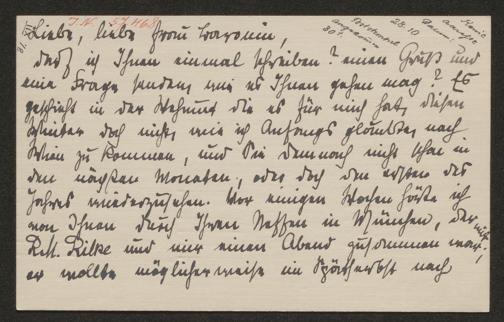 J.N. 57468
Poststempel
28.10
Liebe, liebe Frau Baronin,
darf ich Ihnen einmal schreiben? einen Gruß und
eine Frage senden, wie es Ihnen gehen mag? Es
geschieht in der Wehmut die es für mich hat, diesen
Winter doch nicht, wie ich Anfangs glaubte, nach
Wien zu kommen, und Sie demnach nicht schon in
den nächsten Monaten, oder doch den ersten des
Jahres wiederzusehen. Vor einigen Wochen hörte ich
von Ihnen durch Ihren Neffen in München, der mit
R.M. Rilke und mir einen Abend zusammen war;
er wollte möglicherweise im Spätherbst nach